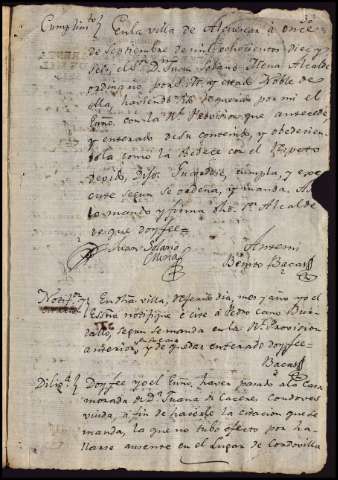 30
Cumplim.to En la villa de Alcuescar à once
de Septiembre de mil ochocientos diez y
seis, el S.r D.n Juan Solano Mena Alcalde
ordinario por S. M. y estado Noble de
ella, haviendo sido requerido por mi el
Essno. con la R.l Provision que antecede
y enterado de su contenido, y obedecien
dola como la obedece con el respeto
devido, Dijo: Guardese, cumpla, y exe
cute segun se ordena, y manda. Asi
lo mando y firma dho. S.or Alcalde
de que doy fee=
Juan Solano
Mena
Antemi
Benito Bacas
Notif.on En dha. villa, referido dia, mes y año yo el
Essno notifiqué è cite à Pedro Cano Bur
dallo, segun se manda en la R.l Provision
anterior, y de quedar enterado doy fee=
Bacas
Dilig.a Doy fee yo el Essno. haver pasado a la Casa
morada de D.a Juana de Caceres Condoves
viuda, à fin de hacerle la citacion que se
manda, lo que no tubo efecto por ha
llarse ausente en el Lugar de Cordovilla